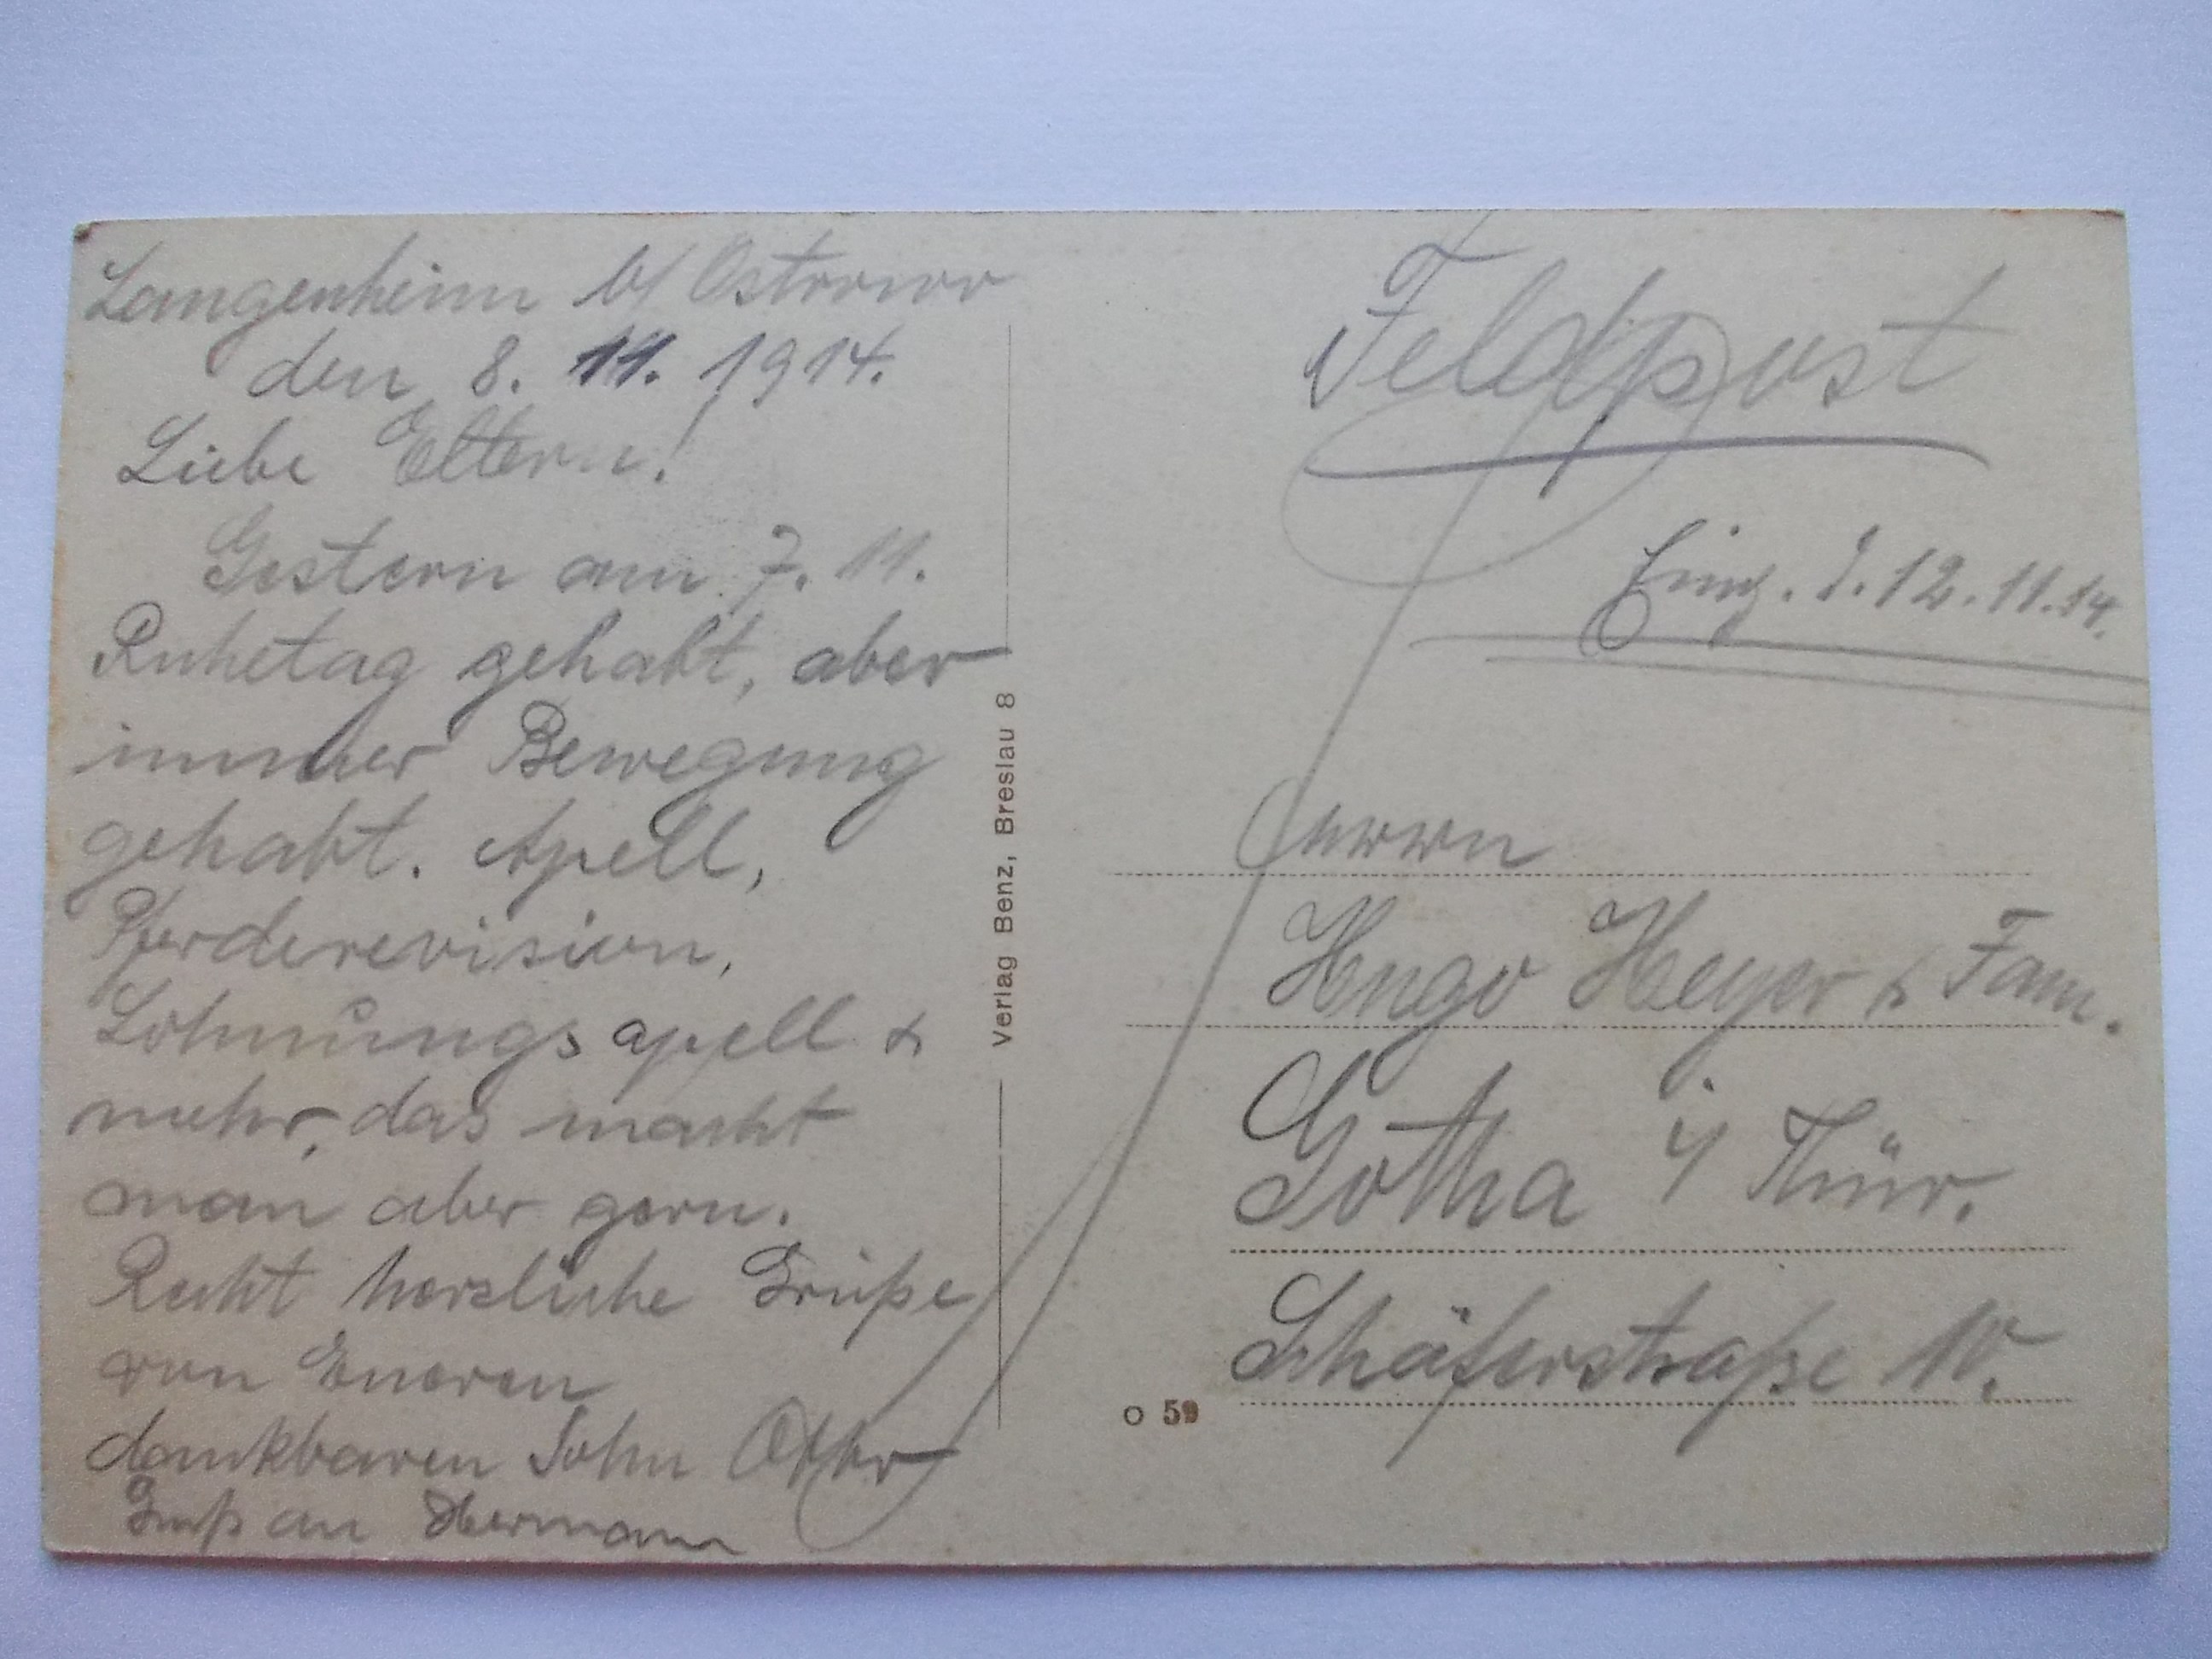 Langenheim b/ Ostrowo
den 8. 11. 1914.
Liebe Eltern!
Gestern am 7. 11.
Ruhetag gehabt, aber
immer Bewegung
gehabt. Apell,
Pferderevision,
Löhnungsapell &
mehr, das macht
man aber gern.
Recht herzliche Grüße
von Eueren
dankbaren Sohn Otto
Gruß an Hermann
Verlag Benz, Breslau 8
Feldpost
Eing. d. 12. 11. 14.
Herrn
Hugo Heyer & Fam.
Gotha i/ Thür.
Schäferstraße 10.
O 59